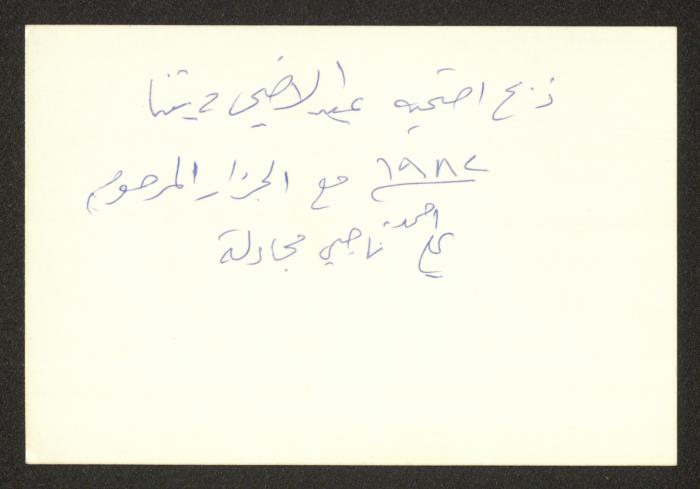 ذبح اضحيه عيد الاضحى في بيتنا
١٩٨٢ مع الجزار المرحوم
احمد
علي ناجي مجادلة